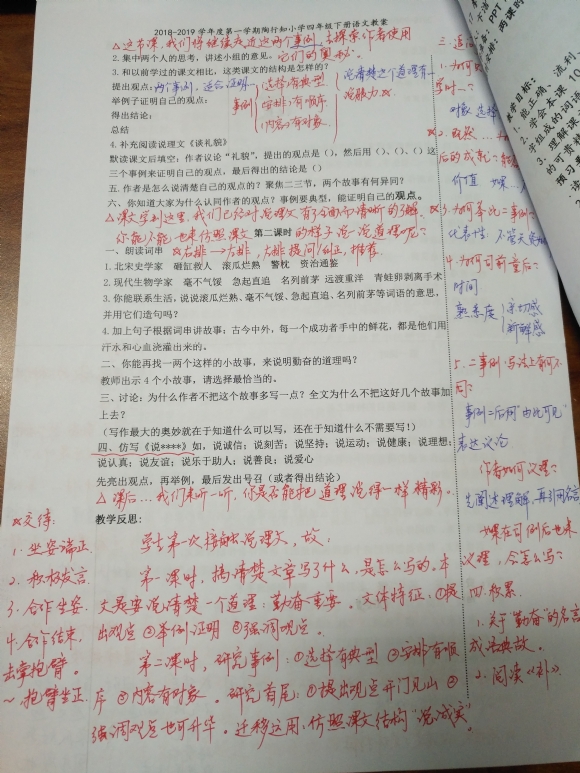 2018-2019 学年度第一学期陶行知小学四年级下册语文教案
△这节课,我们将继续走进这两个事例,去探索作者使用
2. 集中两个人的思考,讲述小组的意见。它们的奥秘。
3. 和以前学过的课文相比,这类课文的结构是怎样的?
提出观点:两个事例,适合证明
举例子证明自己的观点:
事例
选择)有典型
安排)有顺序
内容)有对象
说清楚这个道理有
说服力
得出结论:
总结
4. 补充阅读说理文《谈礼貌》
默读课文后填空:作者议论“礼貌”,提出的观点是(),然后用()、()、()这
三个事例来证明自己的观点,最后得出的结论是()
五. 作者是怎么说清楚自己的观点的?聚焦二三节,两个故事有何异同?
六、你知道大家为什么认同作者的观点?事例要典型,能证明自己的观点。
△课文学到这里,我们已经对说理文有了全面而清晰的了解,
你能不能也来仿照课文的样子说一说道理呢?
第二课时
一、朗读词串
右排→左排,左排提问/纠正,推荐.
1. 北宋史学家 砸缸救人 滚瓜烂熟 警枕 资治通鉴
2. 现代生物学家 毫不气馁 急起直追 名列前茅 远渡重洋 青蛙卵剥离手术
3. 你能联系生活,说说滚瓜烂熟、毫不气馁、急起直追、名列前茅等词语的意思,
并用它们造句吗?
4. 加上句子根据词串讲故事:古今中外,每一个成功者手中的鲜花,都是他们用
汗水和心血浇灌出来的。
二、你能再找一两个这样的小故事,来说明勤奋的道理吗?
教师出示 4 个小故事,请选择最恰当的。
三、讨论:为什么作者不把这个故事多写一点?全文为什么不把这好几个故事加
上去?
(写作最大的奥妙就在于知道什么可以写,还在于知道什么不需要写!)
四、仿写《说****》如,说诚信;说刻苦;说坚持;说运动;说健康;说理想;
说认真;说友谊;说乐于助人;说善良;说爱心
先亮出观点,再举例,最后发出号召(或者得出结论)
△课后…我们来听一听,你是否能把道理说得一样精彩。
教学反思:
学生第一次接触说理文,故:
第一课时,搞清楚文章写了什么,是怎么写的,本
文是要说清楚一个道理:勤奋重要。文体特征:①提
出观点 ②举例证明 ③强调观点。
第二课时,研究事例:①选择有典型 ②安排有顺
序 ③内容有对象。研究首尾:①提出观点开门见山 ②
强调观点也可升华。迁移运用:仿照课文结构“说诚实”。
交待:
1. 坐姿端正
2. 积极发言
3. 合作坐姿
4. 合作结束,
击掌抱臂。
~抱臂坐正
1. 为何
对象 选择
2. 既然
后的成就?
价值
3. 为何
代表性,
4. 为何司前童后?
时间
熟悉度
亲切感
新鲜感
5. 二事例写法上有何不
同?
事例二后有“由此可见”
表达议论
作者如何议理?
先阐述理解,再引用名言
如果在司例后也来
议理,会怎么写?
四. 积累.
1. 关于“勤奋”的名言
成语典故。
2. 阅读《补》
教学目标:
1. 能正确、流利
2. 学会本课
3. 理解课
的可贵
预习